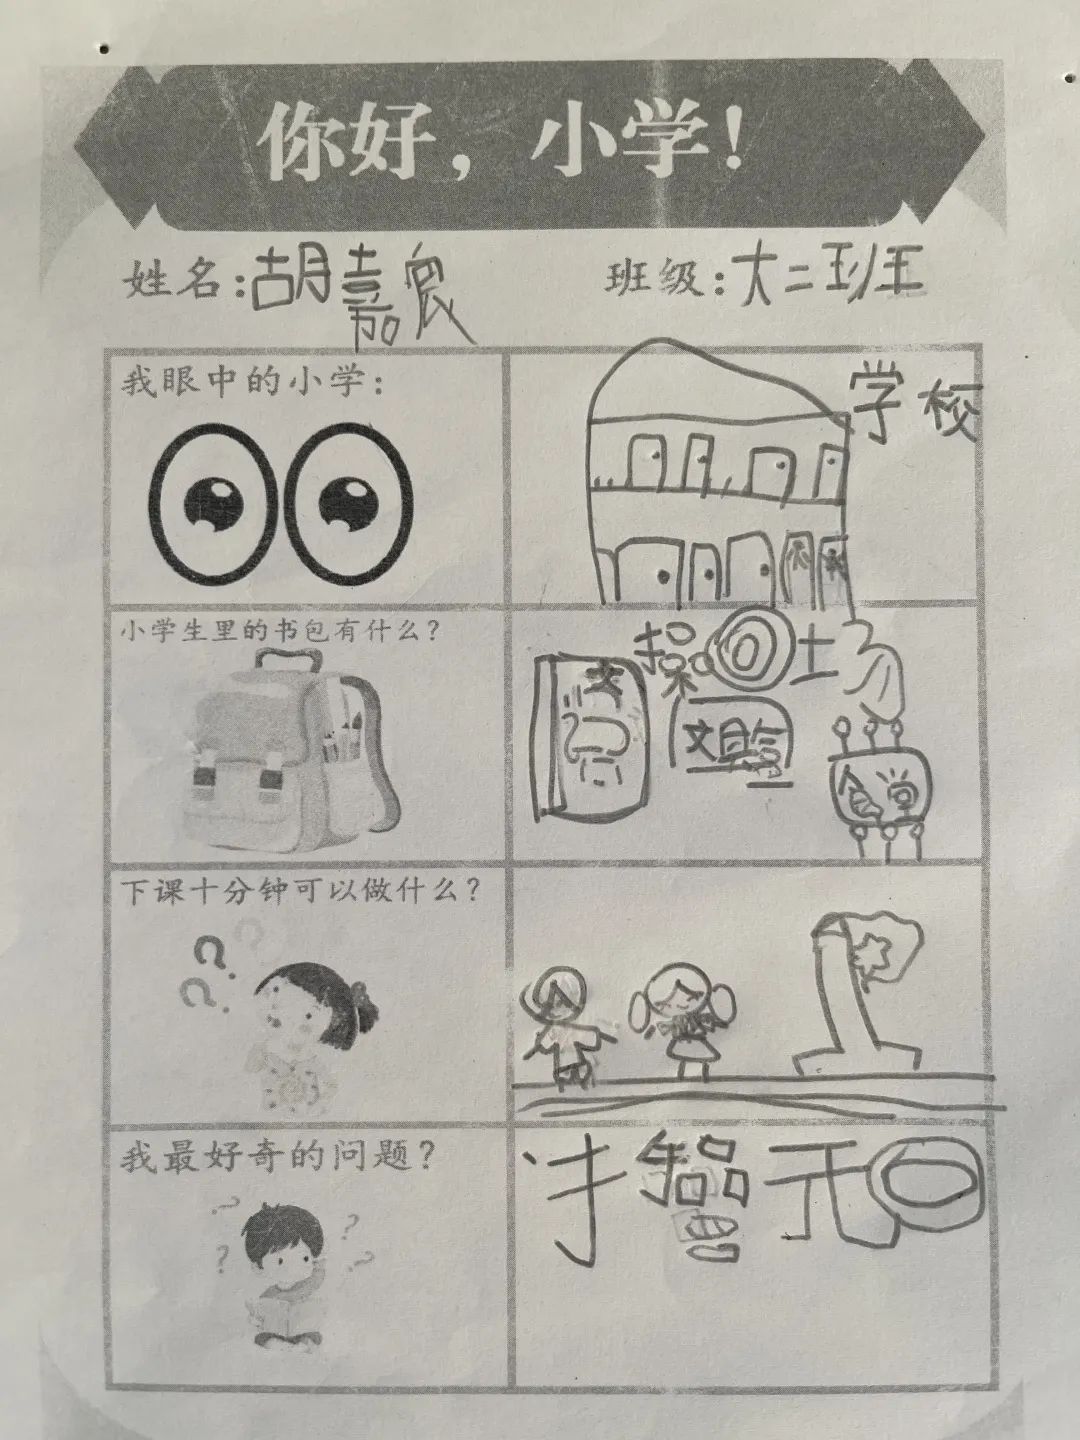 你好，小学！
姓名：胡嘉 班级：大二班
我眼中的小学：
学校
小学生里的书包有什么？
操场
文具盒
食堂
下课十分钟可以做什么？
我最好奇的问题？